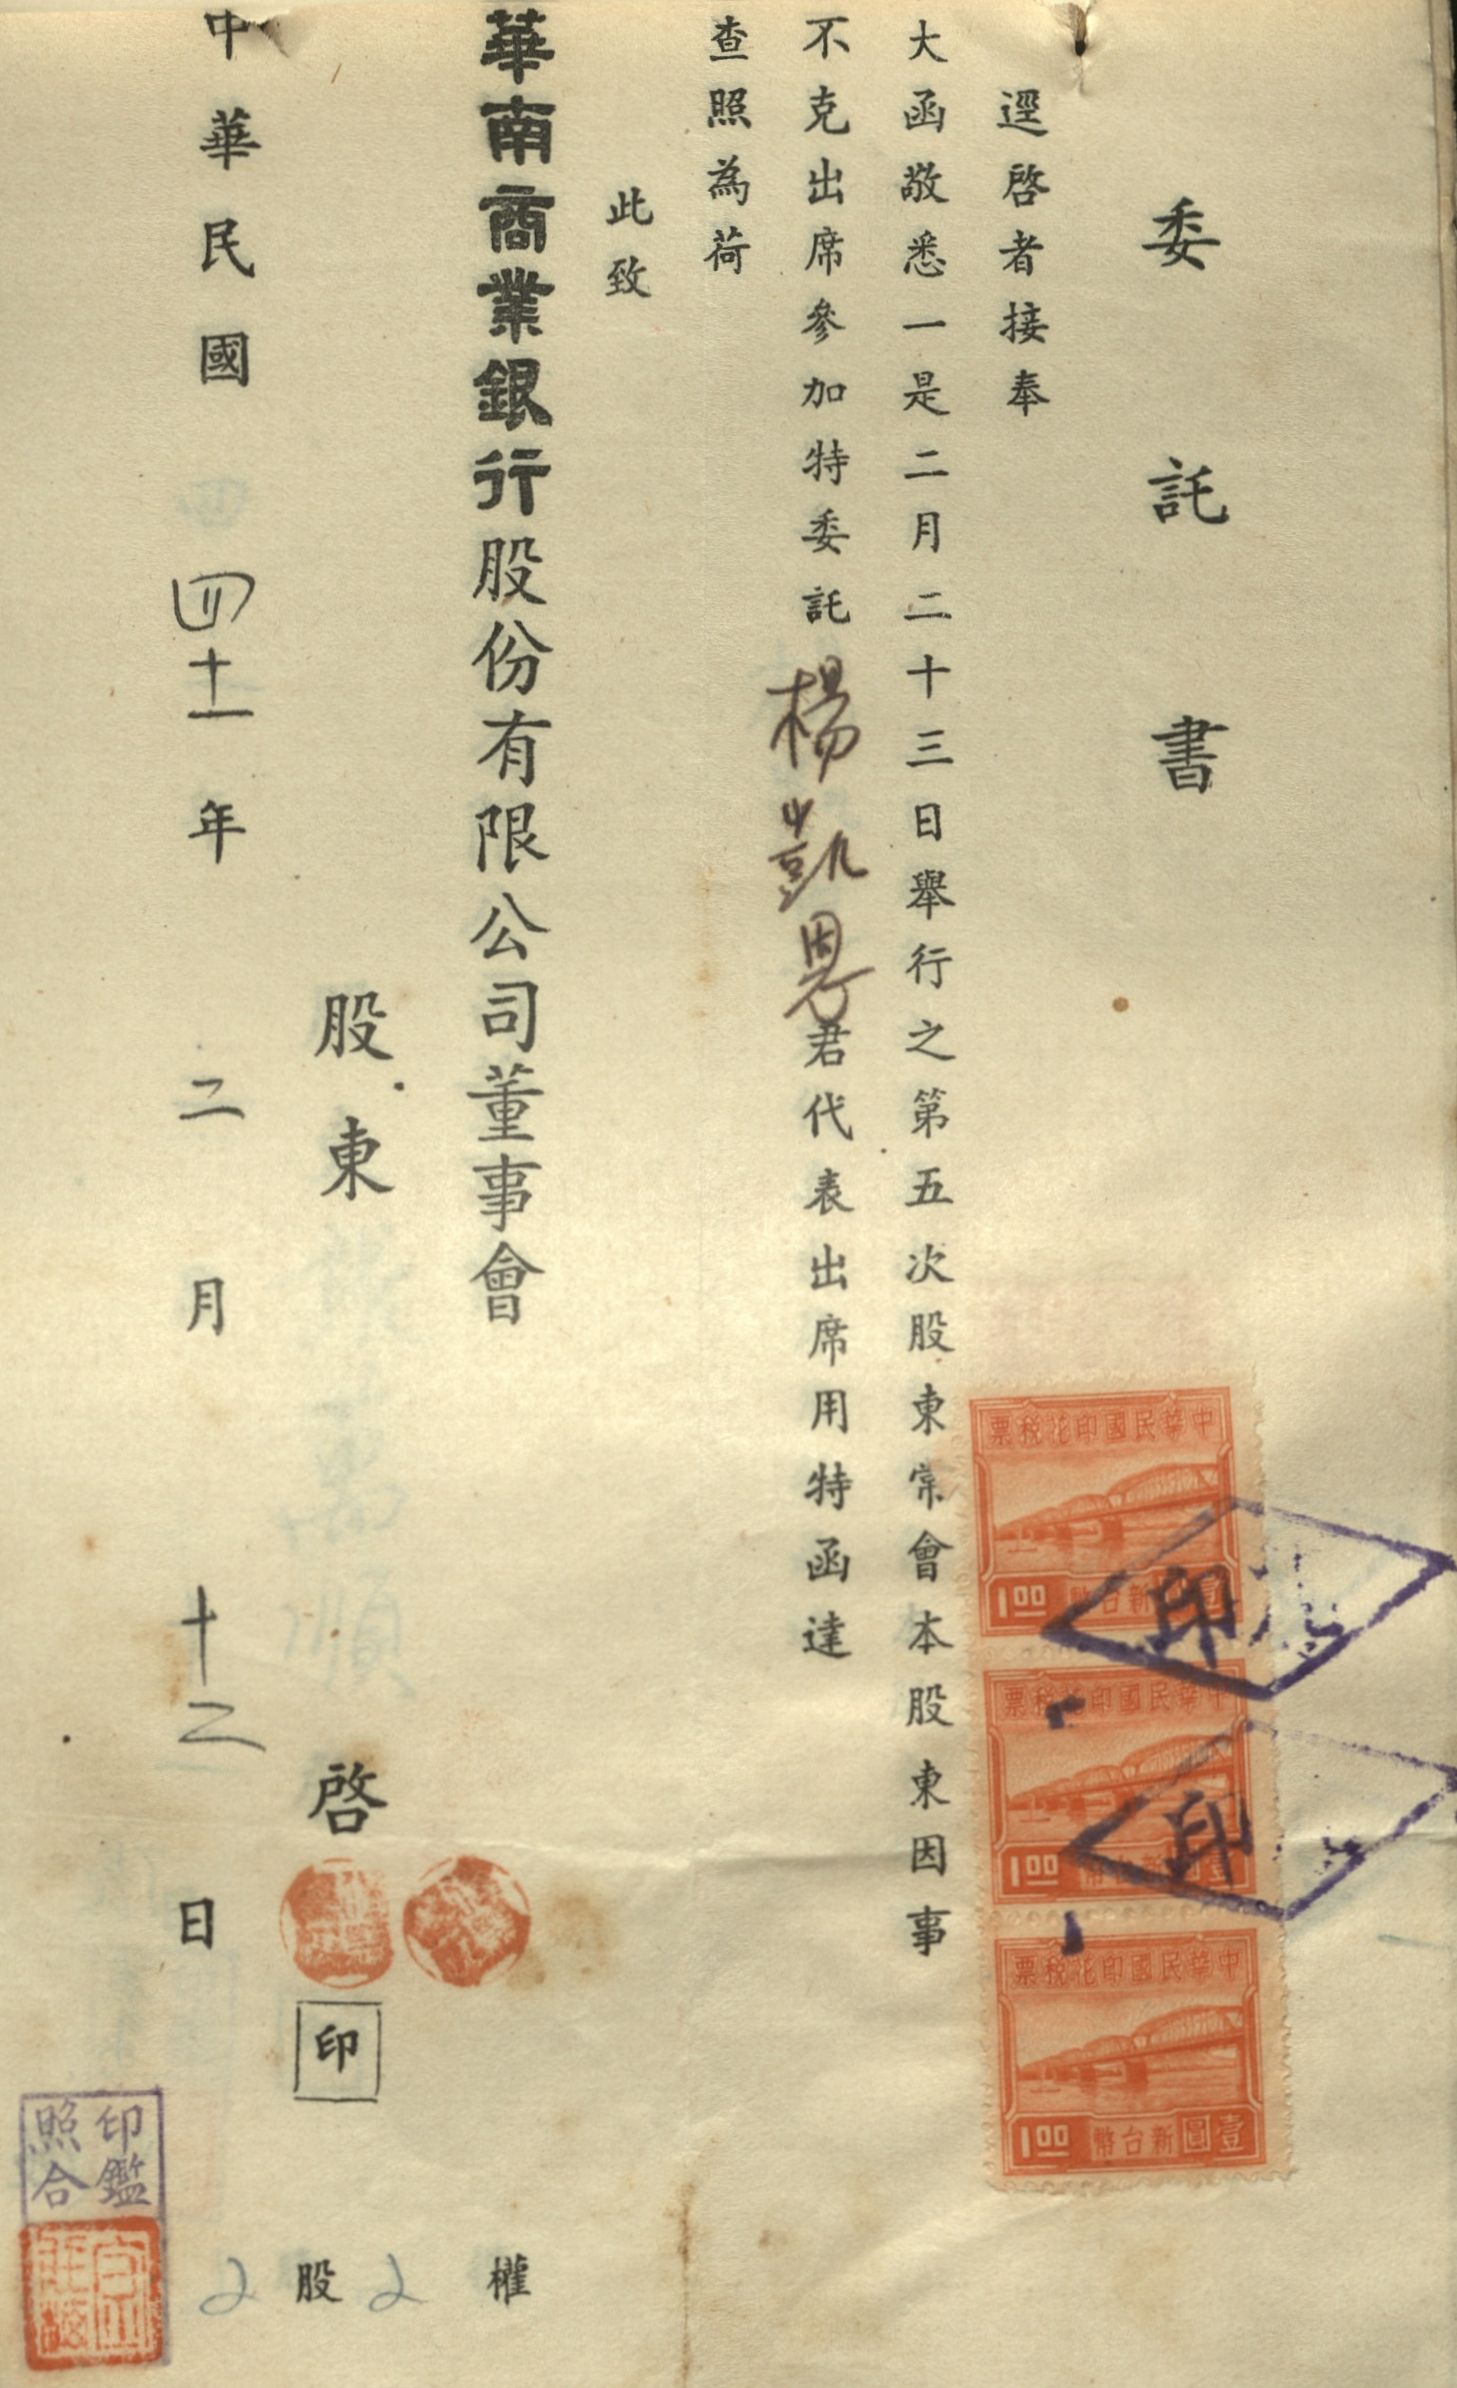 委託書
逕啓者接奉
大函敬悉一是二月二十三日舉行之第五次股東常會本股東因事
不克出席參加特委託楊凱恩君代表出席用特函達
查照為荷
此致
華南商業銀行股份有限公司董事會
股東 啓 印
中華民國四十一年二月十二日
2股2權
中華民國印花稅票
1.00 新台幣壹圓
中華民國印花稅票
1.00 新台幣壹圓
中華民國印花稅票
1.00 新台幣壹圓
印
印
印鑑
照合